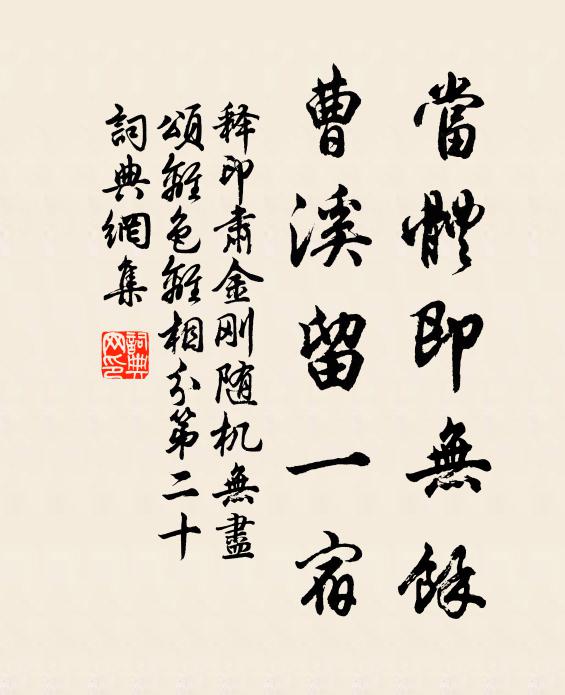 當體即無餘
曹溪留一宿
释印肃金刚随机無盡
頌離色離相分第二十
詞典網集
詞典网印